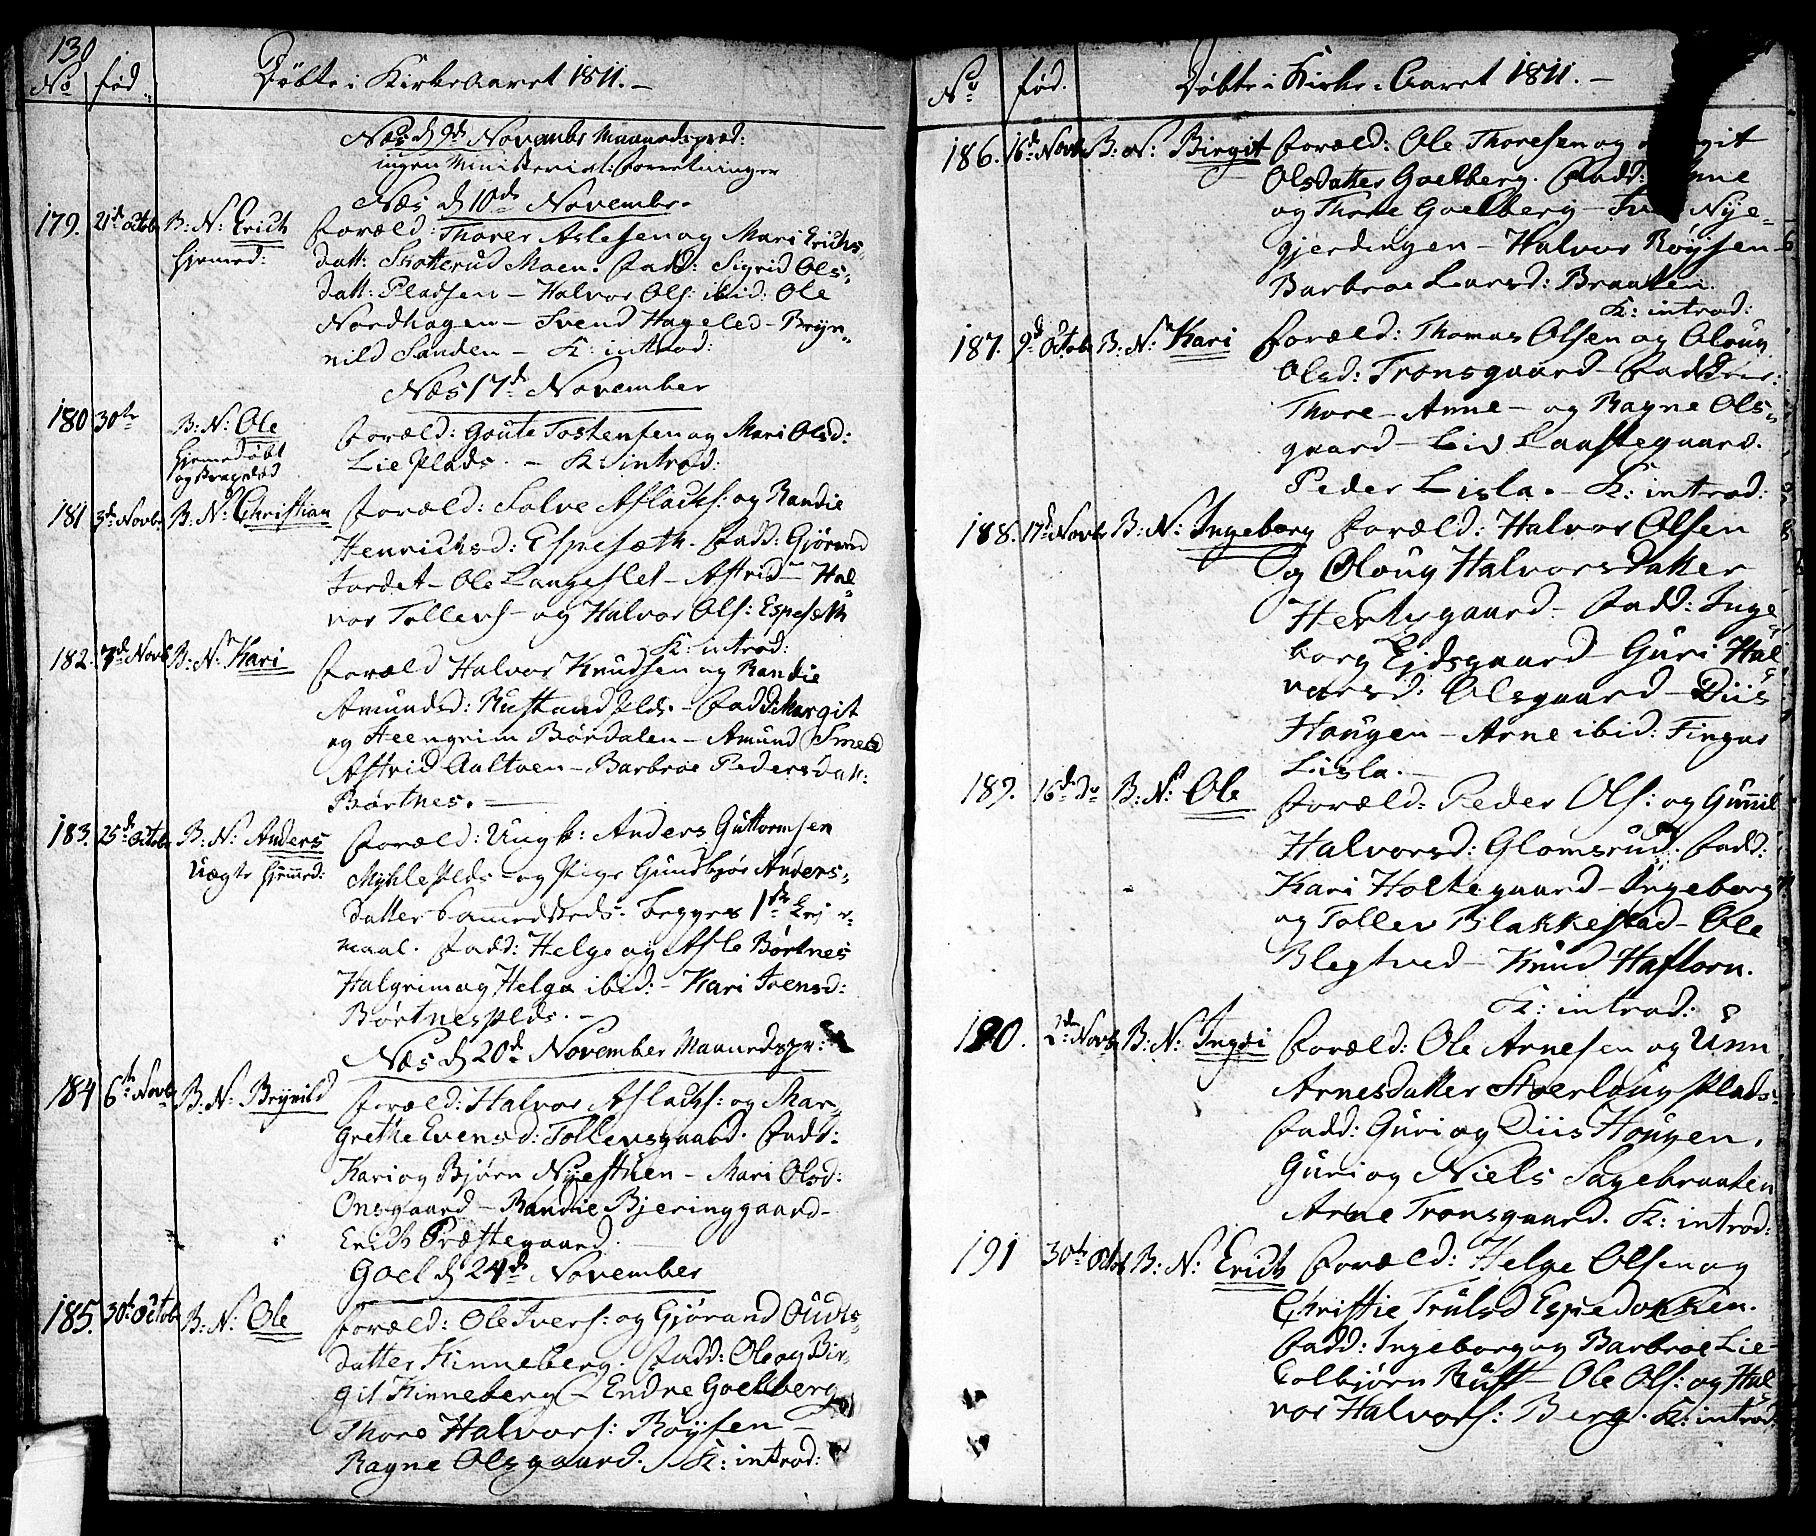 130
No fød. Døbte i Kirke Aaret 1811. –
Næs d 9de Novembr Maanedspræd:
ingen Ministerial: Forretninger
Næs d 10de Novembr.
179. 21de Octobr B: N: Erich Foræld: Thorer Aslesen og Mari Erichs-
hjemed: datt: Skotterud Moen. Fadd: Sigrid Ols-
datt: Pladsen – Halvor Ols: ibid: Ole
Nordhagen – Svend Hageled – Bryn-
nild Sanden – K: introd:
Næs 17de November
180 30te B: N: Ole Foræld: Goute Tostensen og Mari Olsd:
hjemedøbt Lie Plads. – K: introd:
og
181 3de Novbr B: N: Christian Foræld: Salve Aslachs: og Randie
Henrichsd: Espesæth. Fadd: Gjørand
Jordet – Ole Langeslet – Astrid – Hal-
vor Tollevs – og Halvor Ols: Espeseth
K: introd:
182. 7de Novb B: N: Kari Foræld Halvor Knudsen og Randie
Amundsd: Rustand Plds. – Fadd: Margit
og Steengrim Børdalen – Amund Smed
Astrid Aaltven – Barbroe Pedersdatt:
Børtnes. –
183. 25de Octobr B: N: Anders Foræld: Ungk: Anders Guttormsen
Uægte hjemed: Myhle Plds – og Pige Gundbjør Anders-
datter sammesteds begges 1ste Lejer-
maal. Fadd: Helge og Asle Børtnes
Halgrim og Helga ibid: – Kari Ivensd:
Børtnes Plds. –
Næs d 20de November Maanedspr:
184 6te Novbr B: N: Brynild Foræld: Halvor Aslachs: og Mar-
grethe Evensd: Tollevsgaard. Fadd:
Kari og Bjørn Nyestuen – Mari Olsd:
Onsgaard – Randie Bjeringgaard –
Erich Præstegaard.
Goel d 24de November
185. 30te Octobr B: N: Ole Foræld: Ole Ivers: og Gjørand Oudts-
datter Kinneberg. Fadd: Ole og Bir-
git Kinneberg – Endre Goelberg
Thore Halvors: Røysen –
Ragne Olsgaard. K: introd:
No fød. Døbte i Kirke-Aaret 1811. –
186. 16de Novbr B: N: Birgit Foræld: Ole Thoresen og
Olsdatter Goelberg. Fadd:
og Thore Goelberg – Nye-
gjerdingen – Halvor Røysen
Barbroe Larsd: Braaten.
K: introd:
187. 9de Octobr B: N: Kari Foræld: Thomas Olsen og Oloug
Olsd: Trønsgaard – Fadd:
Thore – Anne – og Ragne Ols-
gaard – Liv Laastegaard.
Peder Lisla. – K: introd:
188. 17de Novbr B: N: Ingeborg Foræld: Halvor Olsen
og Oloug Halvorsdatter
Hertsgaard – Fadd: Inge-
borg Ejdsgaard – Guri Hal-
vorsd: Olsgaard – Diis
Hougen – Arne ibid: Fingar
Lisla. –
189. 16de do B: N: Ole Foræld: Peder Ols: og Gunnil
Halvorsd: Glomsrud. Fadd:
Kari Holtegaard – Ingeborg
og Tollev Blakkestad – Ole
Blegtved – Knud Haftorn.
K: introd:
190. 2den Novbr B: N: Ingri Foræld: Ole Arnesen og Unn
Arnesdatter Plads.
Fadd: Guri og Diis Hougen.
Guri og Niels Sagebraaten
Arne Trønsgaard. K: introd:
191 30te Octob B: N: Erich Foræld: Helge Olsen og
Christie Trulsd Espedokken.
Fadd: Ingeborg og Barbroe Lie –
Colbjørn Rust – Ole Ols: og Hal-
vor Halvors: Berg. K: introd: